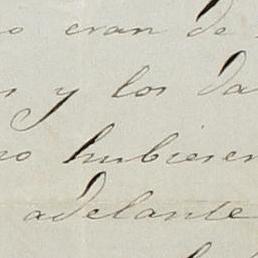 o eran de
s y los da
no hubieren
adelante